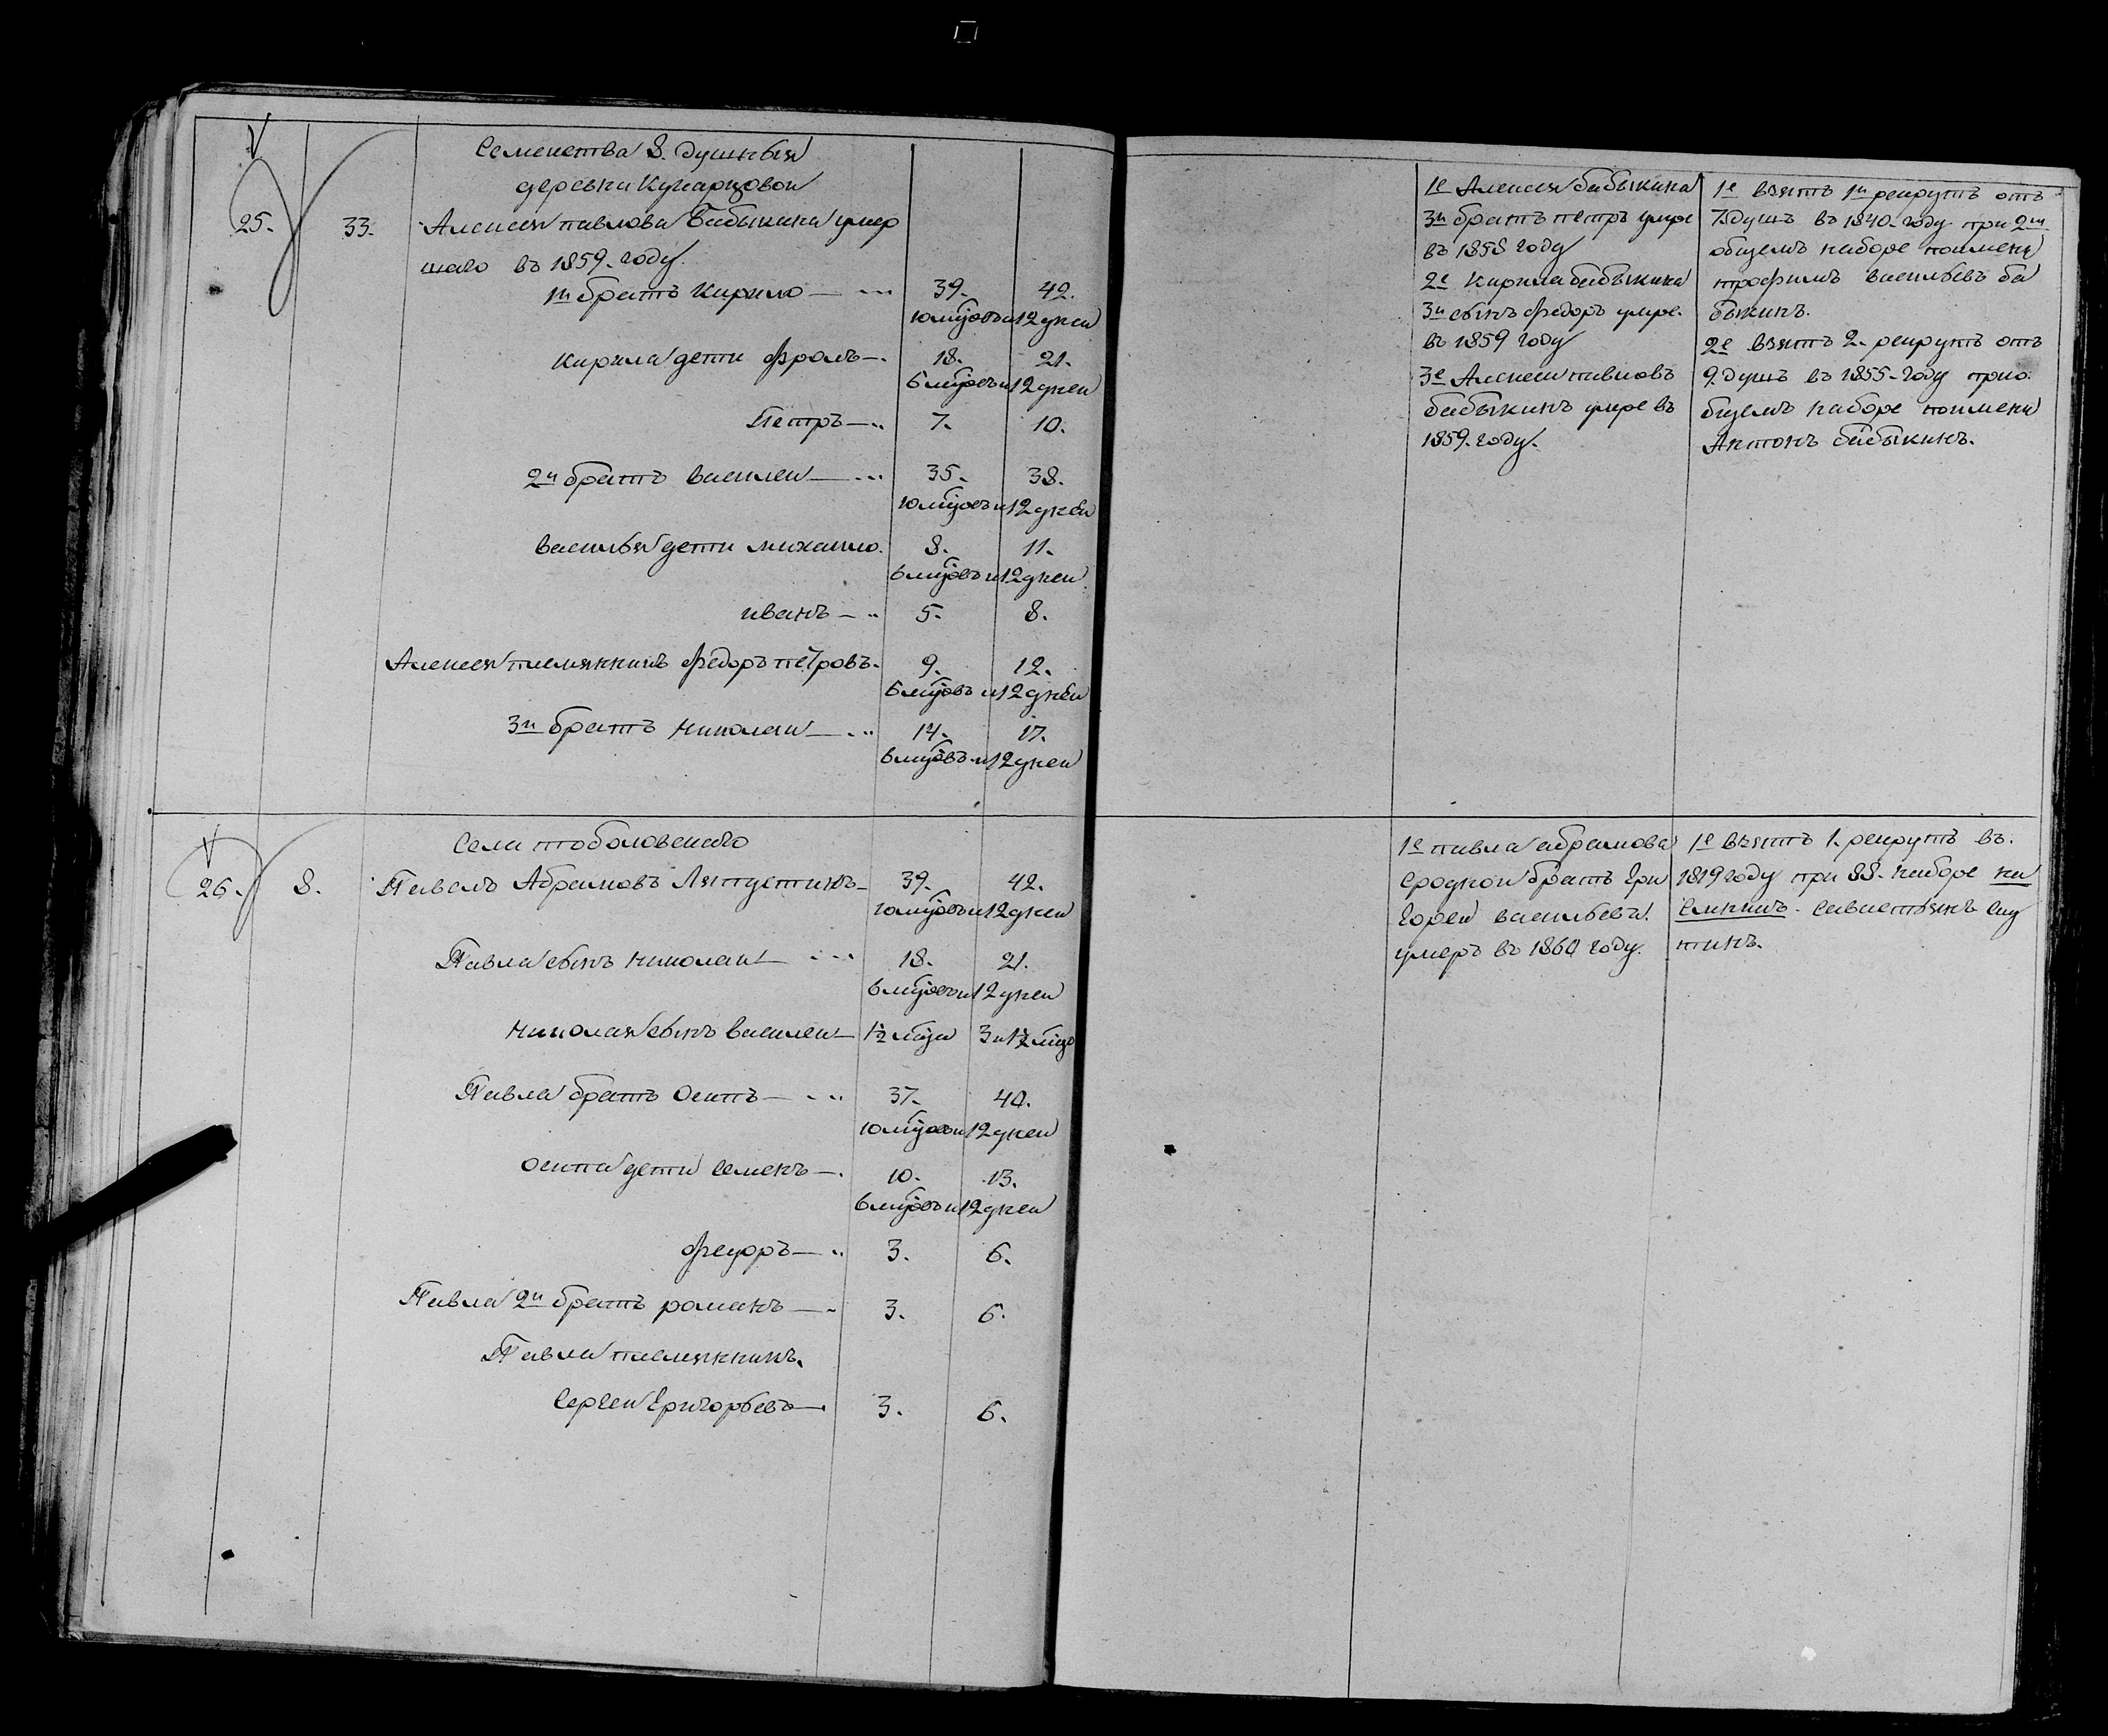 Семейства 8. душныя
деревни Кукарцовой
25. 33. Алексея павлова Бабыкина умер
шаго въ 1859. году.
1й братъ Кирило 39. 42.
10 мцовъ и 12 дней
Кирила дети Фролъ 18. 21.
6 мцовъ и 12 дней
Петръ 7. 10.
2й братъ василей 35. 38.
10 мцовъ и 12 дней
василья дети михайло. 8. 11.
6 мцовъ и 12 дней
иванъ 5. 8.
Алексея племянникъ федоръ петровъ. 9. 12.
6 мцовъ и 12 дней
3й братъ николай 14. 17.
6 мцовъ и 12 дней
Села тоболовскаго
26. 8. Павелъ Абрамовъ 39. 42.
10 мцовъ и 12 дней
Павла сынъ николай 18. 21.
6 мцовъ и 12 дней
николая сынъ василей 1½ мца 3 и 1½ мца
Павла братъ осипъ 37. 40.
10 мцовъ и 12 дней
осипа дети семенъ 10. 13.
6 мцовъ и 12 дней
федоръ 3. 6.
Павла 2й братъ романъ 3. 6.
Павла племянникъ.
Сергей Григорьевъ 3. 6.
1е Алексея бабыкина
3й братъ петръ умре
въ 1858 году
2е Кирила бабыкина
3й сынъ федоръ умре.
въ 1859 году
3е Алексей павловъ
бабыкинъ умре въ
1859. году.
1е взятъ 1й рекрутъ отъ
7. душъ въ 1840. году при 2м
общемъ наборе поимени
трофимъ васильевъ ба
быкинъ.
2е взятъ 2. рекрутъ отъ
9. душъ въ 1855. году при о.
бщемъ наборе поимени
Антонъ бабыкинъ.
1е павла абрамова
сродной братъ Гри
горей васильевъ.
умеръ въ 1860 году.
1е взятъ 1. рекрутъ въ.
1819 году при 88. наборе на
севастьянъ